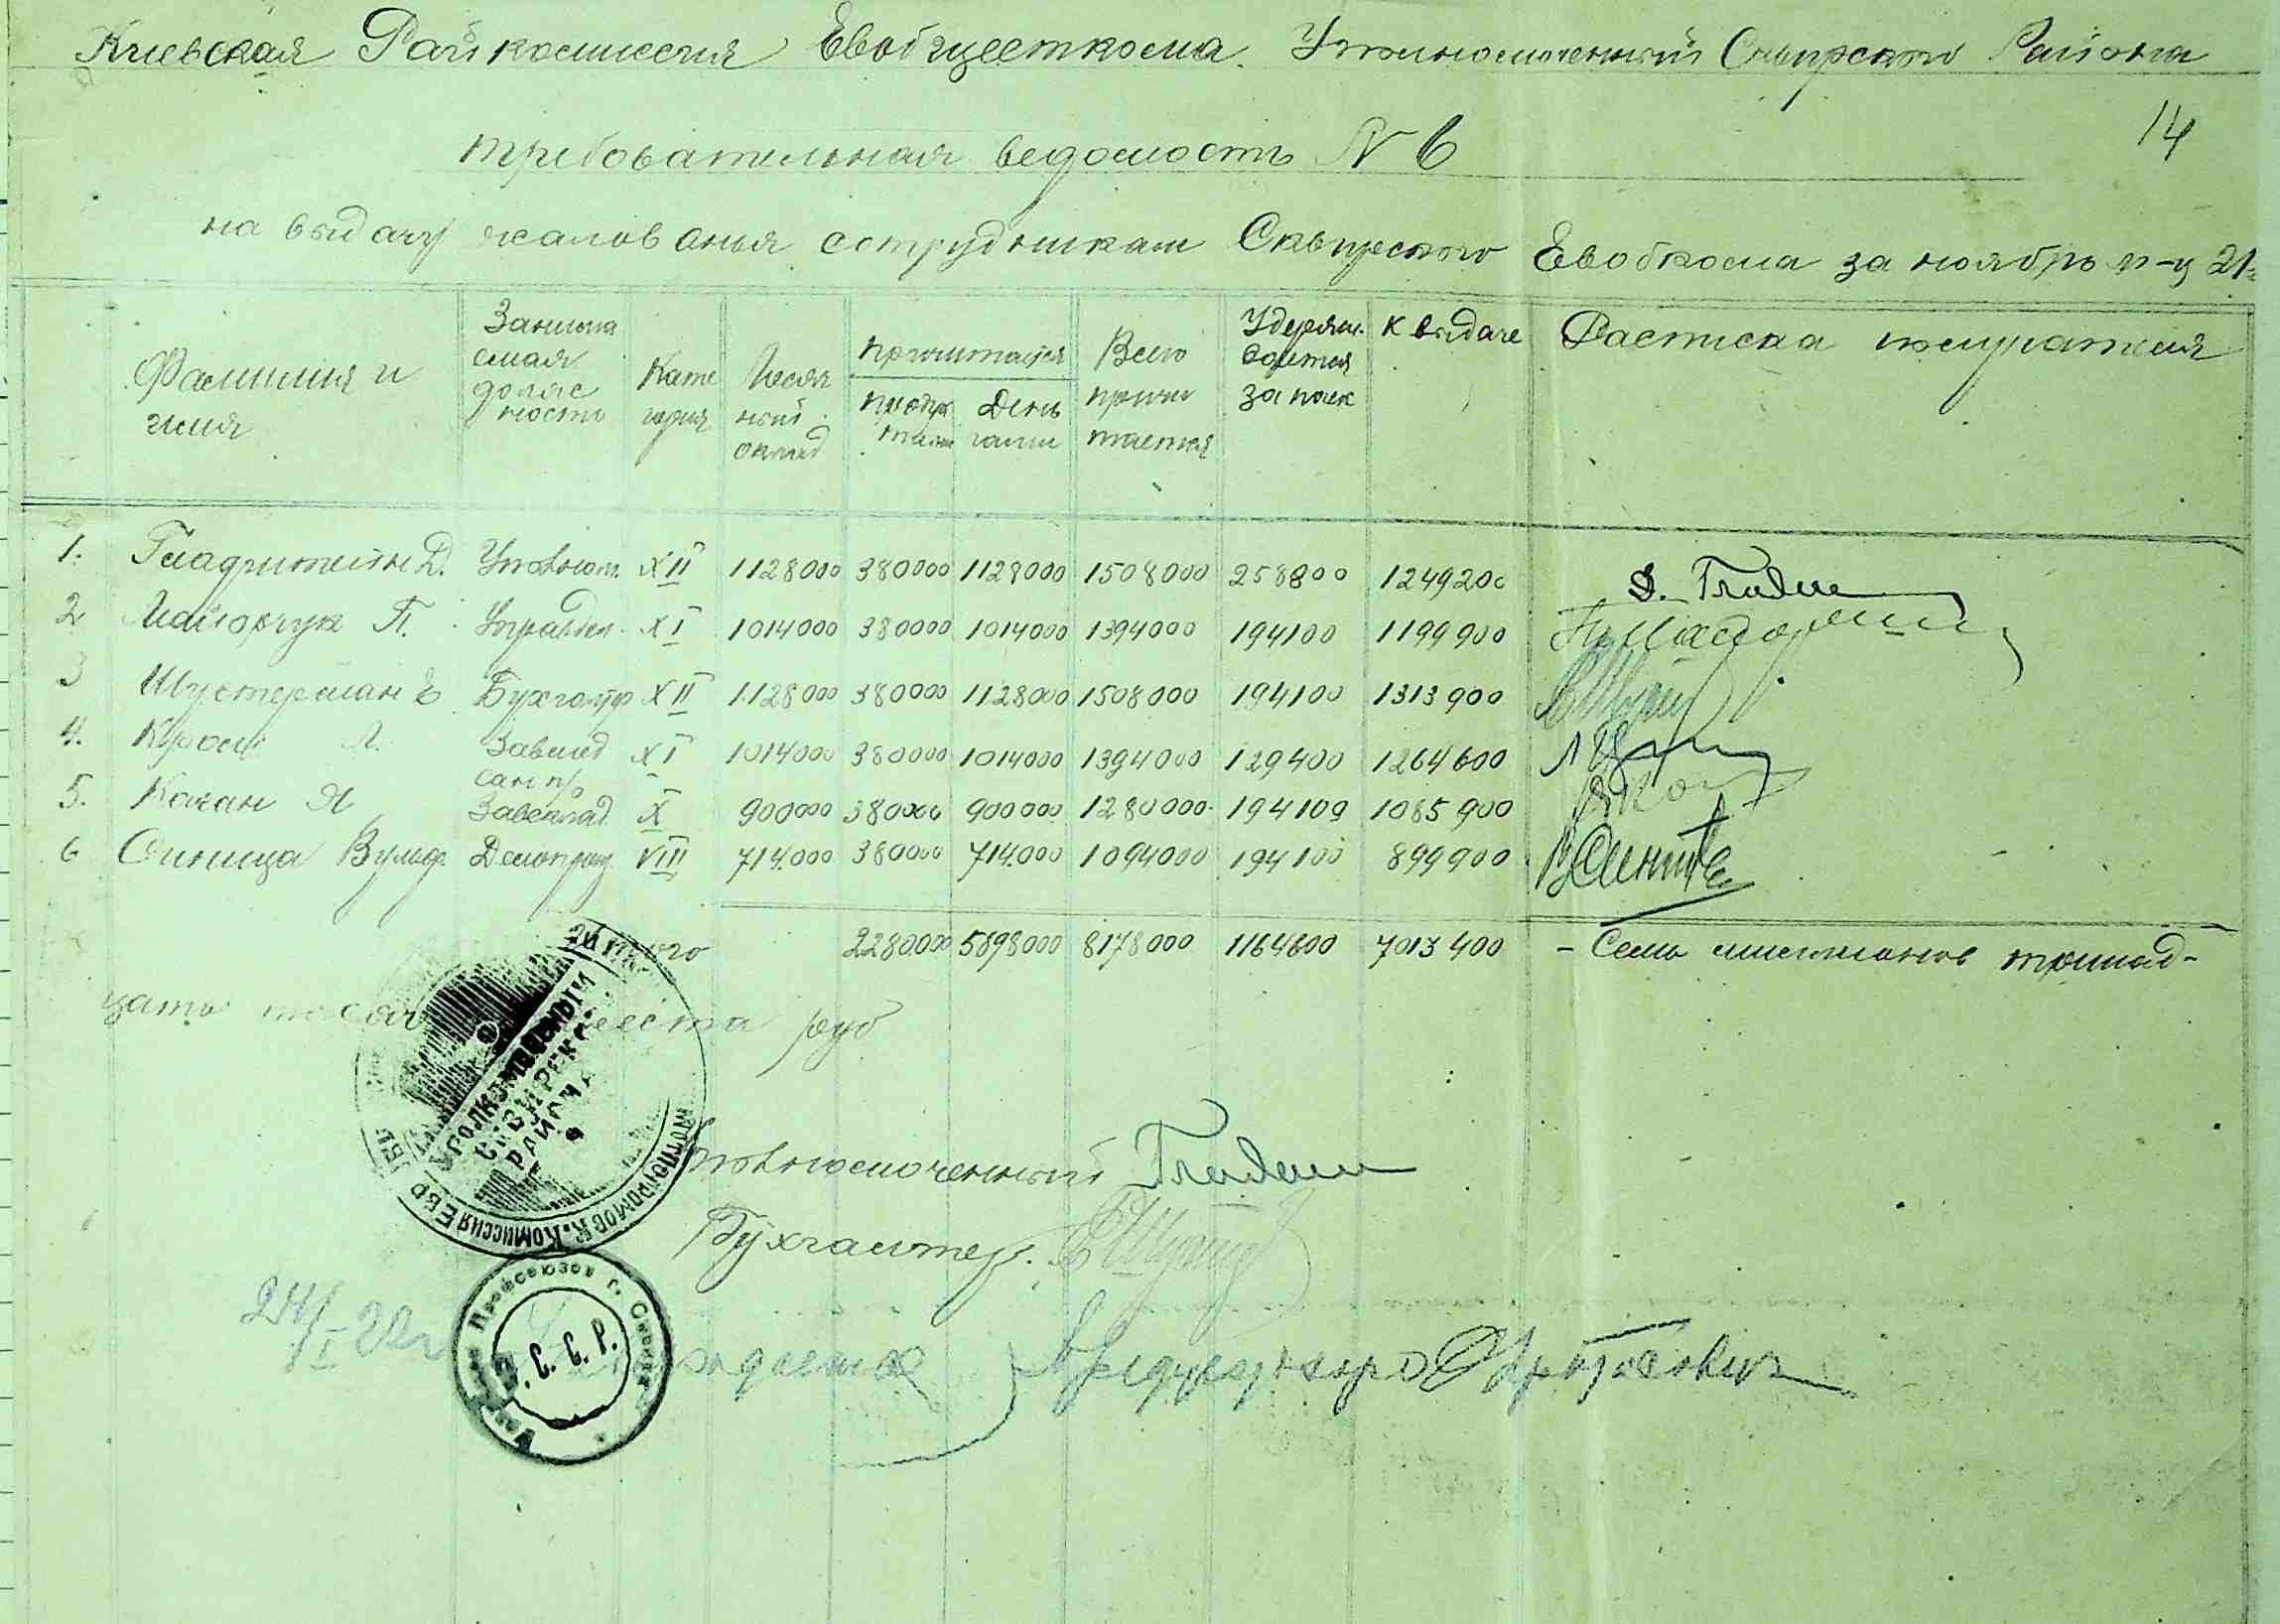 Киевская Райкомиссия Евобщесткома. Уполномоченный Сквирского Района
14
требовательная ведомость № 6
на выдачу жалованья сотрудникам Сквирского Евобкома за ноябрь м-ц 21г.
Фамилия и имя | Занимаемая должность | Категория | Месячный оклад | Причитается продуктами | Деньгами | Всего причитается | Удерживается за паек | К выдаче | Расписка получателя
1. Гладштейн Д. Уполном. XII 1128000 380000 1128000 1508000 258800 1249200
2 Майорчук П. Управдел. XI 1014000 380000 1014000 1394000 194100 1199900
3 Шустерман Е Бухгалтр XII 1128000 380000 1128000 1508000 194100 1313900
4. Л. Завмед сан п/о XI 1014000 380000 1014000 1394000 129400 1264600
5. Каган Я Завсклад. X 900000 380000 900000 1280000 194100 1085900
6 Синица Вульф Делопроиз. VIII 714000 380000 714000 1094000 194100 899900
Итого 2280000 5898000 8178000 1164600 7013400 - Семь миллионов тринад-
цать тысяч руб
УПОЛНОМОЧЕННЫЙ
СКВИРСКОГО
РАЙОНА
ПОГРОМОВ К. КОМИССИЯ ЕВР
Уполномоченный
Бухгалтер.
24/I-22г
Профсоюзов г. Сквира
С. С. Р.